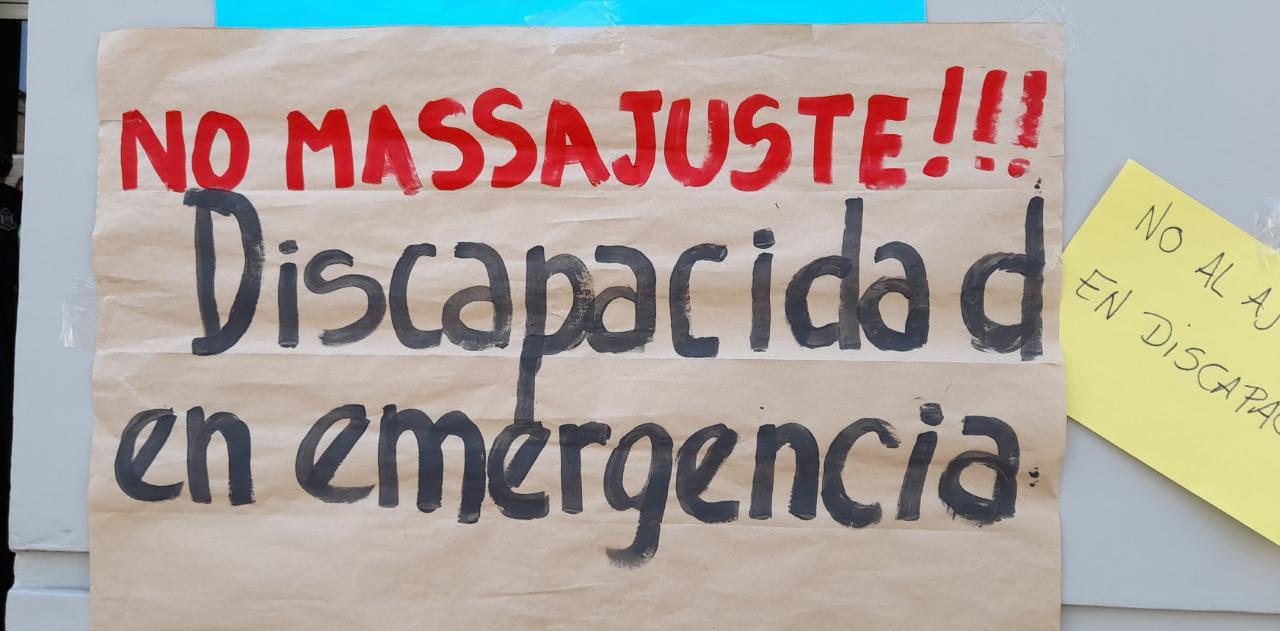 NO MASSAJUSTE!!!
Discapacidad
en emergencia
NO AL
EN DISCAPAC